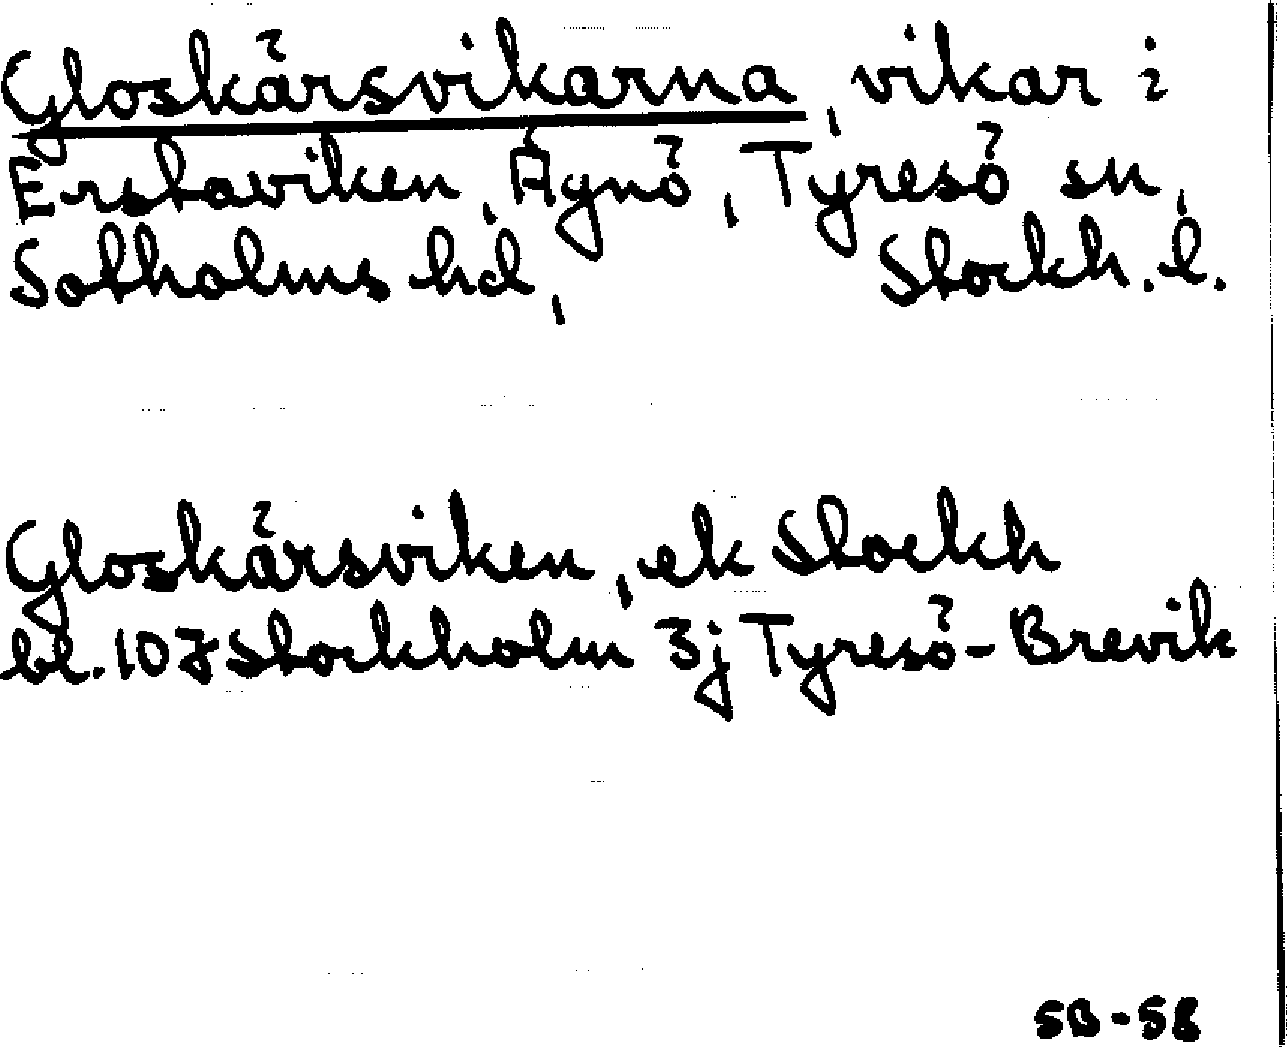 Gloskärsvikarna, vikar i
Erstaviken, Ägnö, Tyresö sn,
Sotholms hd, Stockh. l.
Gloskärsviken, ek Stockh
bl. 107 Stockholm 3j Tyresö-Brevik
SB-58